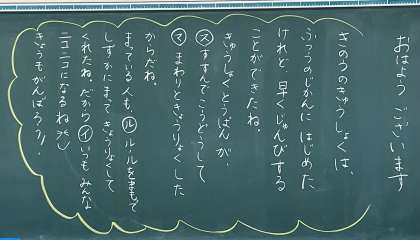 おはようございます
きのうのきゅうしょくは、
ふつうのじかんに はじめた
けれど、早くじゅんびする
ことができたね。
きゅうしょくとうばんが、
スすすんでこうどうして
マまわりときょうりょくした
からだね。
まっている人も、ルルールをまもって
しずかにまって きょうりょくして
くれたね。だからイいつも みんな
ニコニコになるね
きょうもがんばろう!